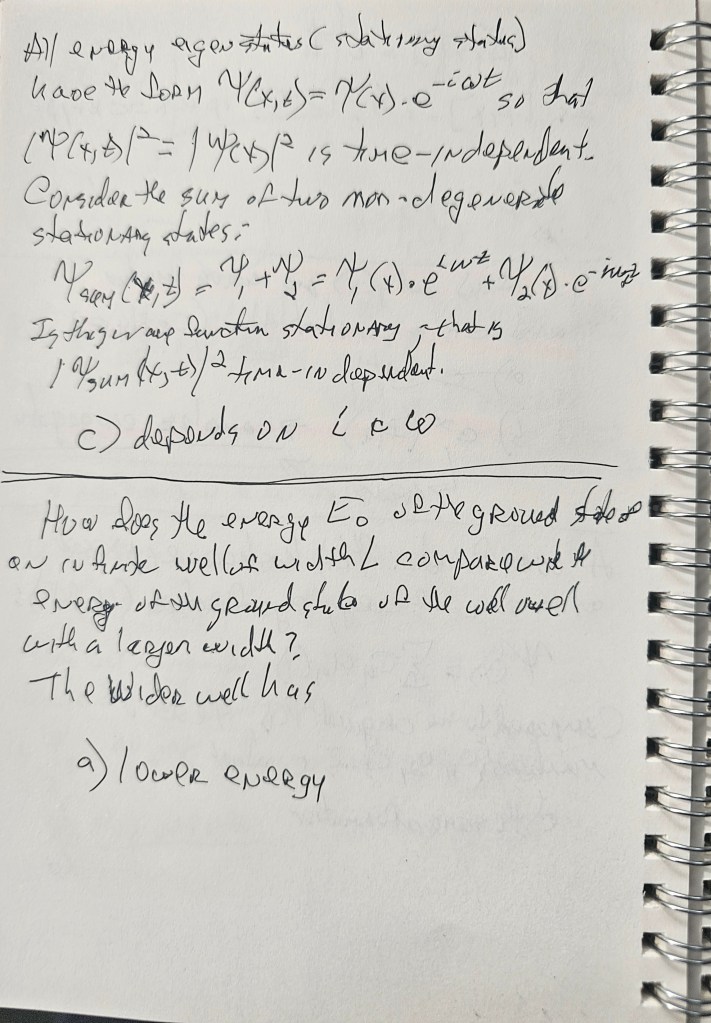 All energy eigenstates (stationary states)
have the form Ψ(x,t) = Ψ(x)·e^{-iωt} so that
|Ψ(x,t)|² = |Ψ(x)|² is time-independent.
Consider the sum of two non-degenerate
stationary states:
Ψ_sum (x,t) = Ψ₁ + Ψ₂ = Ψ₁(x)·e^{iωt} + Ψ₂(x)·e^{-iω₂t}
Is the wave function stationary, that is
|Ψ_SUM (x,t)|² time-independent.
c) depends on
How does the energy E₀ of the ground state of
an infinite well of width L compare with
energy of the ground state of the well
with a larger width?
The wider well has
a) lower energy